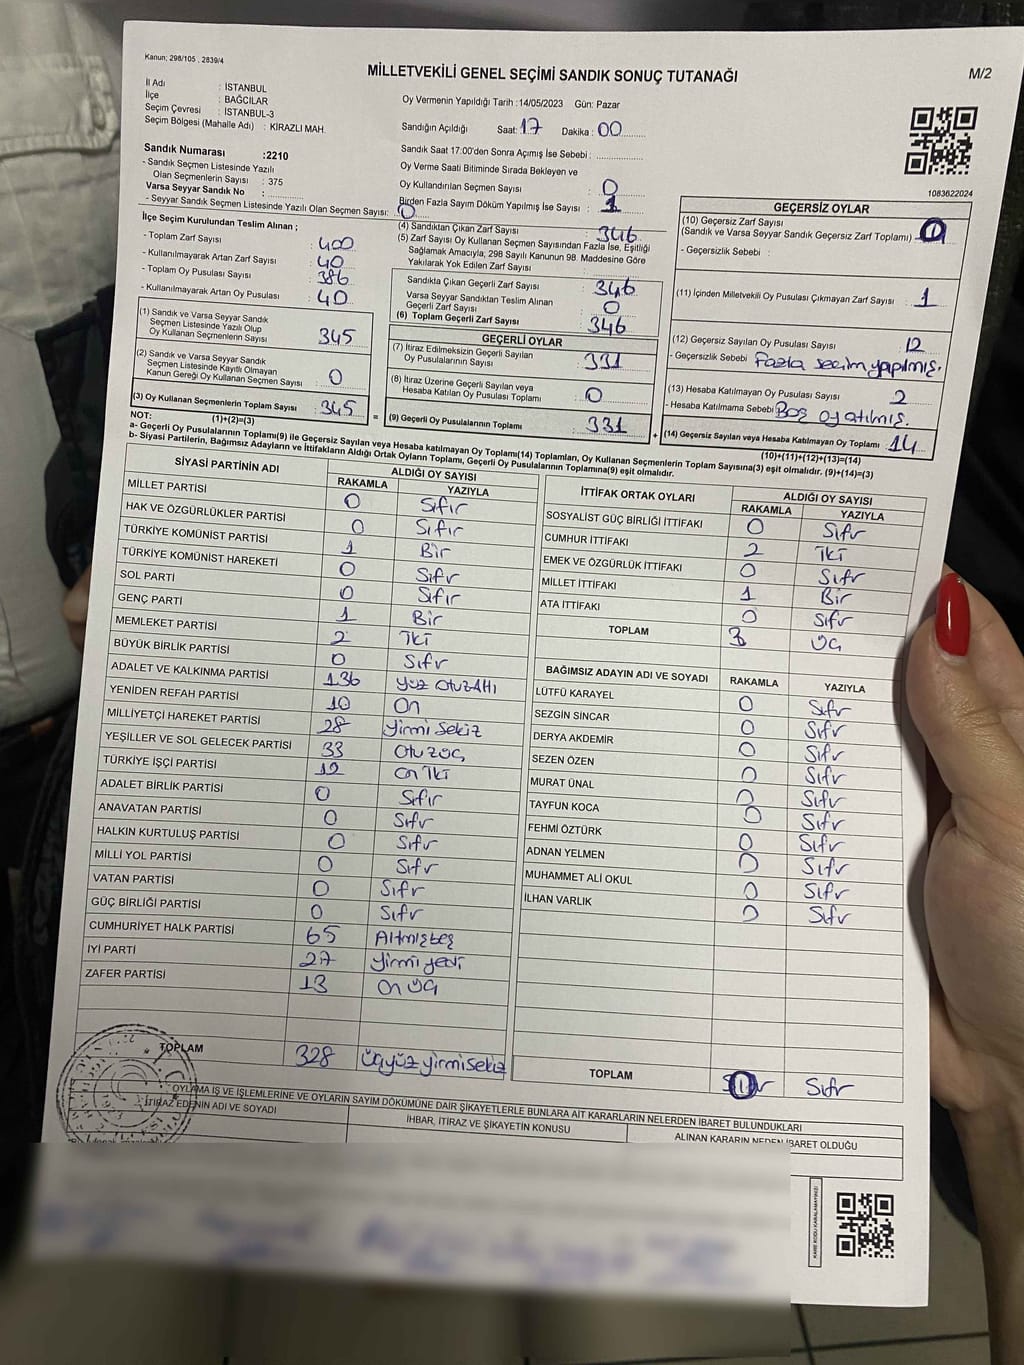 Kanun; 298/105 , 2839/4
MİLLETVEKİLİ GENEL SEÇİMİ SANDIK SONUÇ TUTANAĞI
M/2
İl Adı : İSTANBUL
İlçe : BAĞCILAR
Seçim Çevresi : İSTANBUL-3
Seçim Bölgesi (Mahalle Adı) : KİRAZLI MAH.
Sandık Numarası :2210
- Sandık Seçmen Listesinde Yazılı
Olan Seçmenlerin Sayısı : 375
Varsa Seyyar Sandık No :
- Seyyar Sandık Seçmen Listesinde Yazılı Olan Seçmen Sayısı: 0
Oy Vermenin Yapıldığı Tarih :14/05/2023 Gün: Pazar
Sandığın Açıldığı Saat: 17 Dakika : 00
Sandık Saat 17:00'den Sonra Açımış İse Sebebi :
Oy Verme Saati Bitiminde Sırada Bekleyen ve
Oy Kullandırılan Seçmen Sayısı : 0
Birden Fazla Sayım Döküm Yapılmış İse Sayısı : 1
1083622024
İlçe Seçim Kurulundan Teslim Alınan ;
- Toplam Zarf Sayısı : 400
- Kullanılmayarak Artan Zarf Sayısı : 40
- Toplam Oy Pusulası Sayısı : 386
- Kullanılmayarak Artan Oy Pusulası : 40
(1) Sandık ve Varsa Seyyar Sandık
Seçmen Listesinde Yazılı Olup
Oy Kullanan Seçmenlerin Sayısı : 345
(2) Sandık ve Varsa Seyyar Sandık
Seçmen Listesinde Kayıtlı Olmayan
Kanun Gereği Oy Kullanan Seçmen Sayısı : 0
(3) Oy Kullanan Seçmenlerin Toplam Sayısı : 345
(1)+(2)=(3)
(4) Sandıktan Çıkan Zarf Sayısı : 346
(5) Zarf Sayısı Oy Kullanan Seçmen Sayısından Fazla İse, Eşitliği
Sağlamak Amacıyla, 298 Sayılı Kanunun 98. Maddesine Göre
Yakılarak Yok Edilen Zarf Sayısı :
Sandıkta Çıkan Geçerli Zarf Sayısı : 346
Varsa Seyyar Sandıktan Teslim Alınan
Geçerli Zarf Sayısı : 0
(6) Toplam Geçerli Zarf Sayısı : 346
GEÇERLİ OYLAR
(7) İtiraz Edilmeksizin Geçerli Sayılan
Oy Pusulalarının Sayısı : 331
(8) İtiraz Üzerine Geçerli Sayılan veya
Hesaba Katılan Oy Pusulası Toplamı : 0
= (9) Geçerli Oy Pusulalarının Toplamı : 331
GEÇERSİZ OYLAR
(10) Geçersiz Zarf Sayısı
(Sandık ve Varsa Seyyar Sandık Geçersiz Zarf Toplamı) :
- Geçersizlik Sebebi :
(11) İçinden Milletvekili Oy Pusulası Çıkmayan Zarf Sayısı : 1
(12) Geçersiz Sayılan Oy Pusulası Sayısı : 12
- Geçersizlik Sebebi : Fazla seçim yapılmış.
(13) Hesaba Katılmayan Oy Pusulası Sayısı : 2
- Hesaba Katılmama Sebebi : Boş oy atılmış.
+ (14) Geçersiz Sayılan veya Hesaba Katılmayan Oy Toplamı : 14
(10)+(11)+(12)+(13)=(14)
NOT:
a- Geçerli Oy Pusulasının Toplamı(9) ile Geçersiz Sayılan veya Hesaba katılmayan Oy Toplamı(14) Toplamları, Oy Kullanan Seçmenlerin Toplam Sayısına(3) eşit olmalıdır. (9)+(14)=(3)
b- Siyasi Partilerin, Bağımsız Adayların ve İttifakların Aldığı Ortak Oyların Toplamı, Geçerli Oy Pusulalarının Toplamına(9) eşit olmalıdır.
SİYASİ PARTİNİN ADI ALDIĞI OY SAYISI
RAKAMLA YAZIYLA
MİLLET PARTİSİ 0 Sıfır
HAK VE ÖZGÜRLÜKLER PARTİSİ 0 Sıfır
TÜRKİYE KOMÜNİST PARTİSİ 1 Bir
TÜRKİYE KOMÜNİST HAREKETİ 0 Sıfır
SOL PARTİ 0 Sıfır
GENÇ PARTİ 1 Bir
MEMLEKET PARTİSİ 2 İki
BÜYÜK BİRLİK PARTİSİ 0 Sıfır
ADALET VE KALKINMA PARTİSİ 136 Yüz Otuz Altı
YENİDEN REFAH PARTİSİ 10 On
MİLLİYETÇİ HAREKET PARTİSİ 28 Yirmi Sekiz
YEŞİLLER VE SOL GELECEK PARTİSİ 33 Otuz Üç
TÜRKİYE İŞÇİ PARTİSİ 12 On İki
ADALET BİRLİK PARTİSİ 0 Sıfır
ANAVATAN PARTİSİ 0 Sıfır
HALKIN KURTULUŞ PARTİSİ 0 Sıfır
MİLLİ YOL PARTİSİ 0 Sıfır
VATAN PARTİSİ 0 Sıfır
GÜÇ BİRLİĞİ PARTİSİ 0 Sıfır
CUMHURİYET HALK PARTİSİ 65 Altmışbeş
İYİ PARTİ 27 Yirmi yedi
ZAFER PARTİSİ 13 On Üç
TOPLAM 328 Üçyüz yirmi Sekiz
İTTİFAK ORTAK OYLARI ALDIĞI OY SAYISI
RAKAMLA YAZIYLA
SOSYALİST GÜÇ BİRLİĞİ İTTİFAKI 0 Sıfır
CUMHUR İTTİFAKI 2 İki
EMEK VE ÖZGÜRLÜK İTTİFAKI 0 Sıfır
MİLLET İTTİFAKI 1 Bir
ATA İTTİFAKI 0 Sıfır
TOPLAM 3 Üç
BAĞIMSIZ ADAYIN ADI VE SOYADI RAKAMLA YAZIYLA
LÜTFÜ KARAYEL 0 Sıfır
SEZGİN SİNCAR 0 Sıfır
DERYA AKDEMİR 0 Sıfır
SEZEN ÖZEN 0 Sıfır
MURAT ÜNAL 0 Sıfır
TAYFUN KOCA 0 Sıfır
FEHMİ ÖZTÜRK 0 Sıfır
ADNAN YELMEN 0 Sıfır
MUHAMMET ALİ OKUL 0 Sıfır
İLHAN VARLIK 0 Sıfır
TOPLAM Sıfır
OYLAMA İŞ VE İŞLEMLERİNE VE OYLARIN SAYIM DÖKÜMÜNE DAİR ŞİKAYETLERLE BUNLARA AİT KARARLARIN NELERDEN İBARET BULUNDUKLARI
İTİRAZ EDENİN ADI VE SOYADI
İHBAR, İTİRAZ VE ŞİKAYETİN KONUSU
ALINAN KARARIN NEDEN İBARET OLDUĞU
KARE KODU KARALAMAYINIZ!